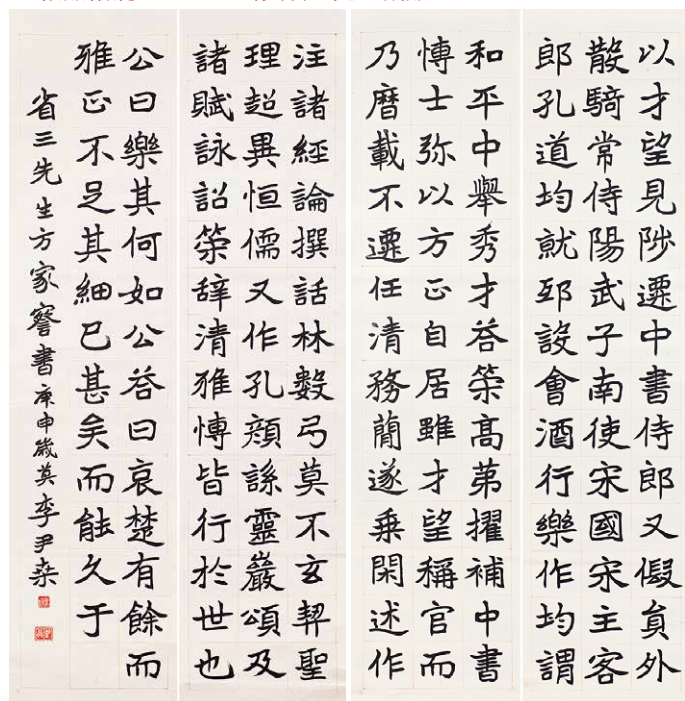 以才望見陟遷中書侍郎又假負外
散騎常侍陽武子南使宋國宋主客
郎孔道均就邳設會酒行樂作均謂
和平中舉秀才荅策高苐擢補中書
愽士弥以方正自居雖才望稱官而
乃曆載不遷任清務蕳遂乗閑述作
注諸經論撰話林數弓莫不玄契聖
理超異恒儒又作孔顔誄靈巖頌及
諸賦詠詔策辭清雅愽皆行於世也
公曰樂其何如公荅曰哀楚有餘而
雅正不足其細已甚矣而能久于
省三先生方家詧書庚申歲莫李尹桑